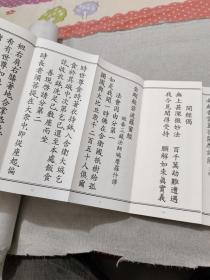 開經偈
無上甚深微妙法 百千萬劫難遭遇
我今見聞得受持 願解如來真實義
金剛般若波羅蜜經
姚秦三藏法師鳩摩羅什譯
法會因由分第一
如是我聞一時佛在舍衛國祇樹給孤
獨園與大比丘眾千二百五十人俱爾
時世尊食時著衣持鉢入舍衛大城乞
食於其城中次第乞已還至本處飯食
訖收衣鉢洗足已敷座而坐
善現啟請分第二
時長老須菩提在大眾中即從座起偏
袒右肩右膝著地合掌恭
希有世尊如